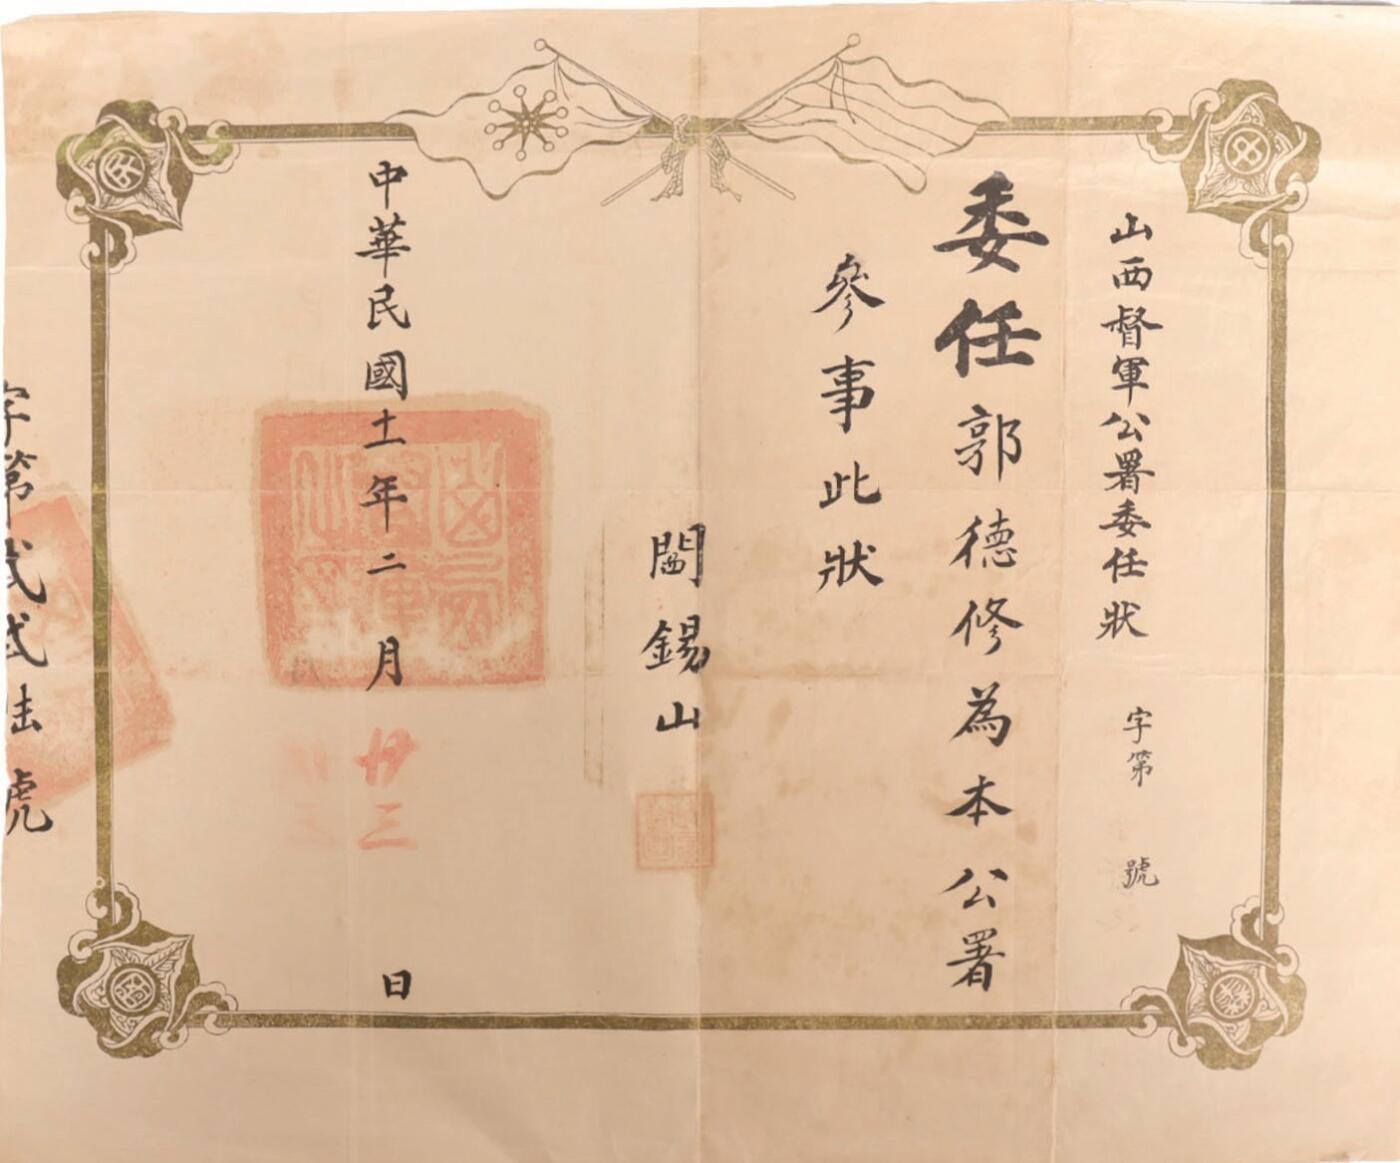 山西督軍公署委任狀 字第 號
委任郭德修為本公署
參事此狀
閻錫山
中華民國十一年二月廿三日
字第弍弍陸號